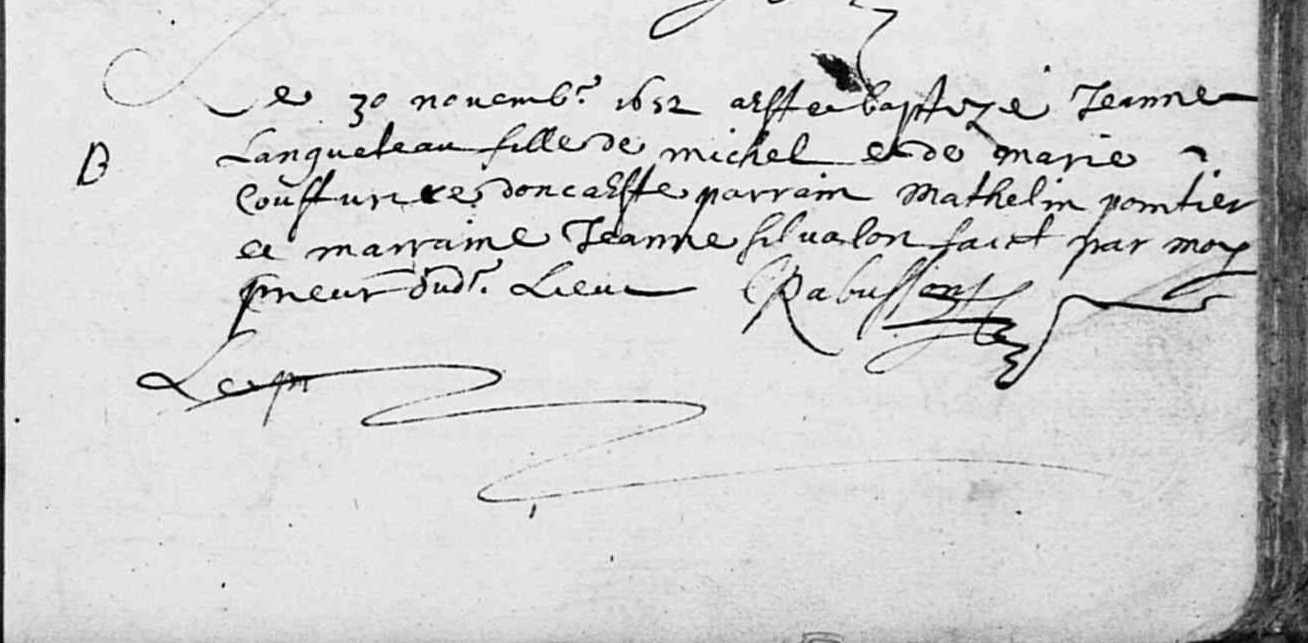 Le 30 novemb.e 1652 a este baptizé Jeanne
B
Langueteau fille de michel et de marie
Cousturere donc a este parrain Mathelin pointier
et marraine Jeanne silualon faict par moy
prieur dud.t Lieu Rabusson